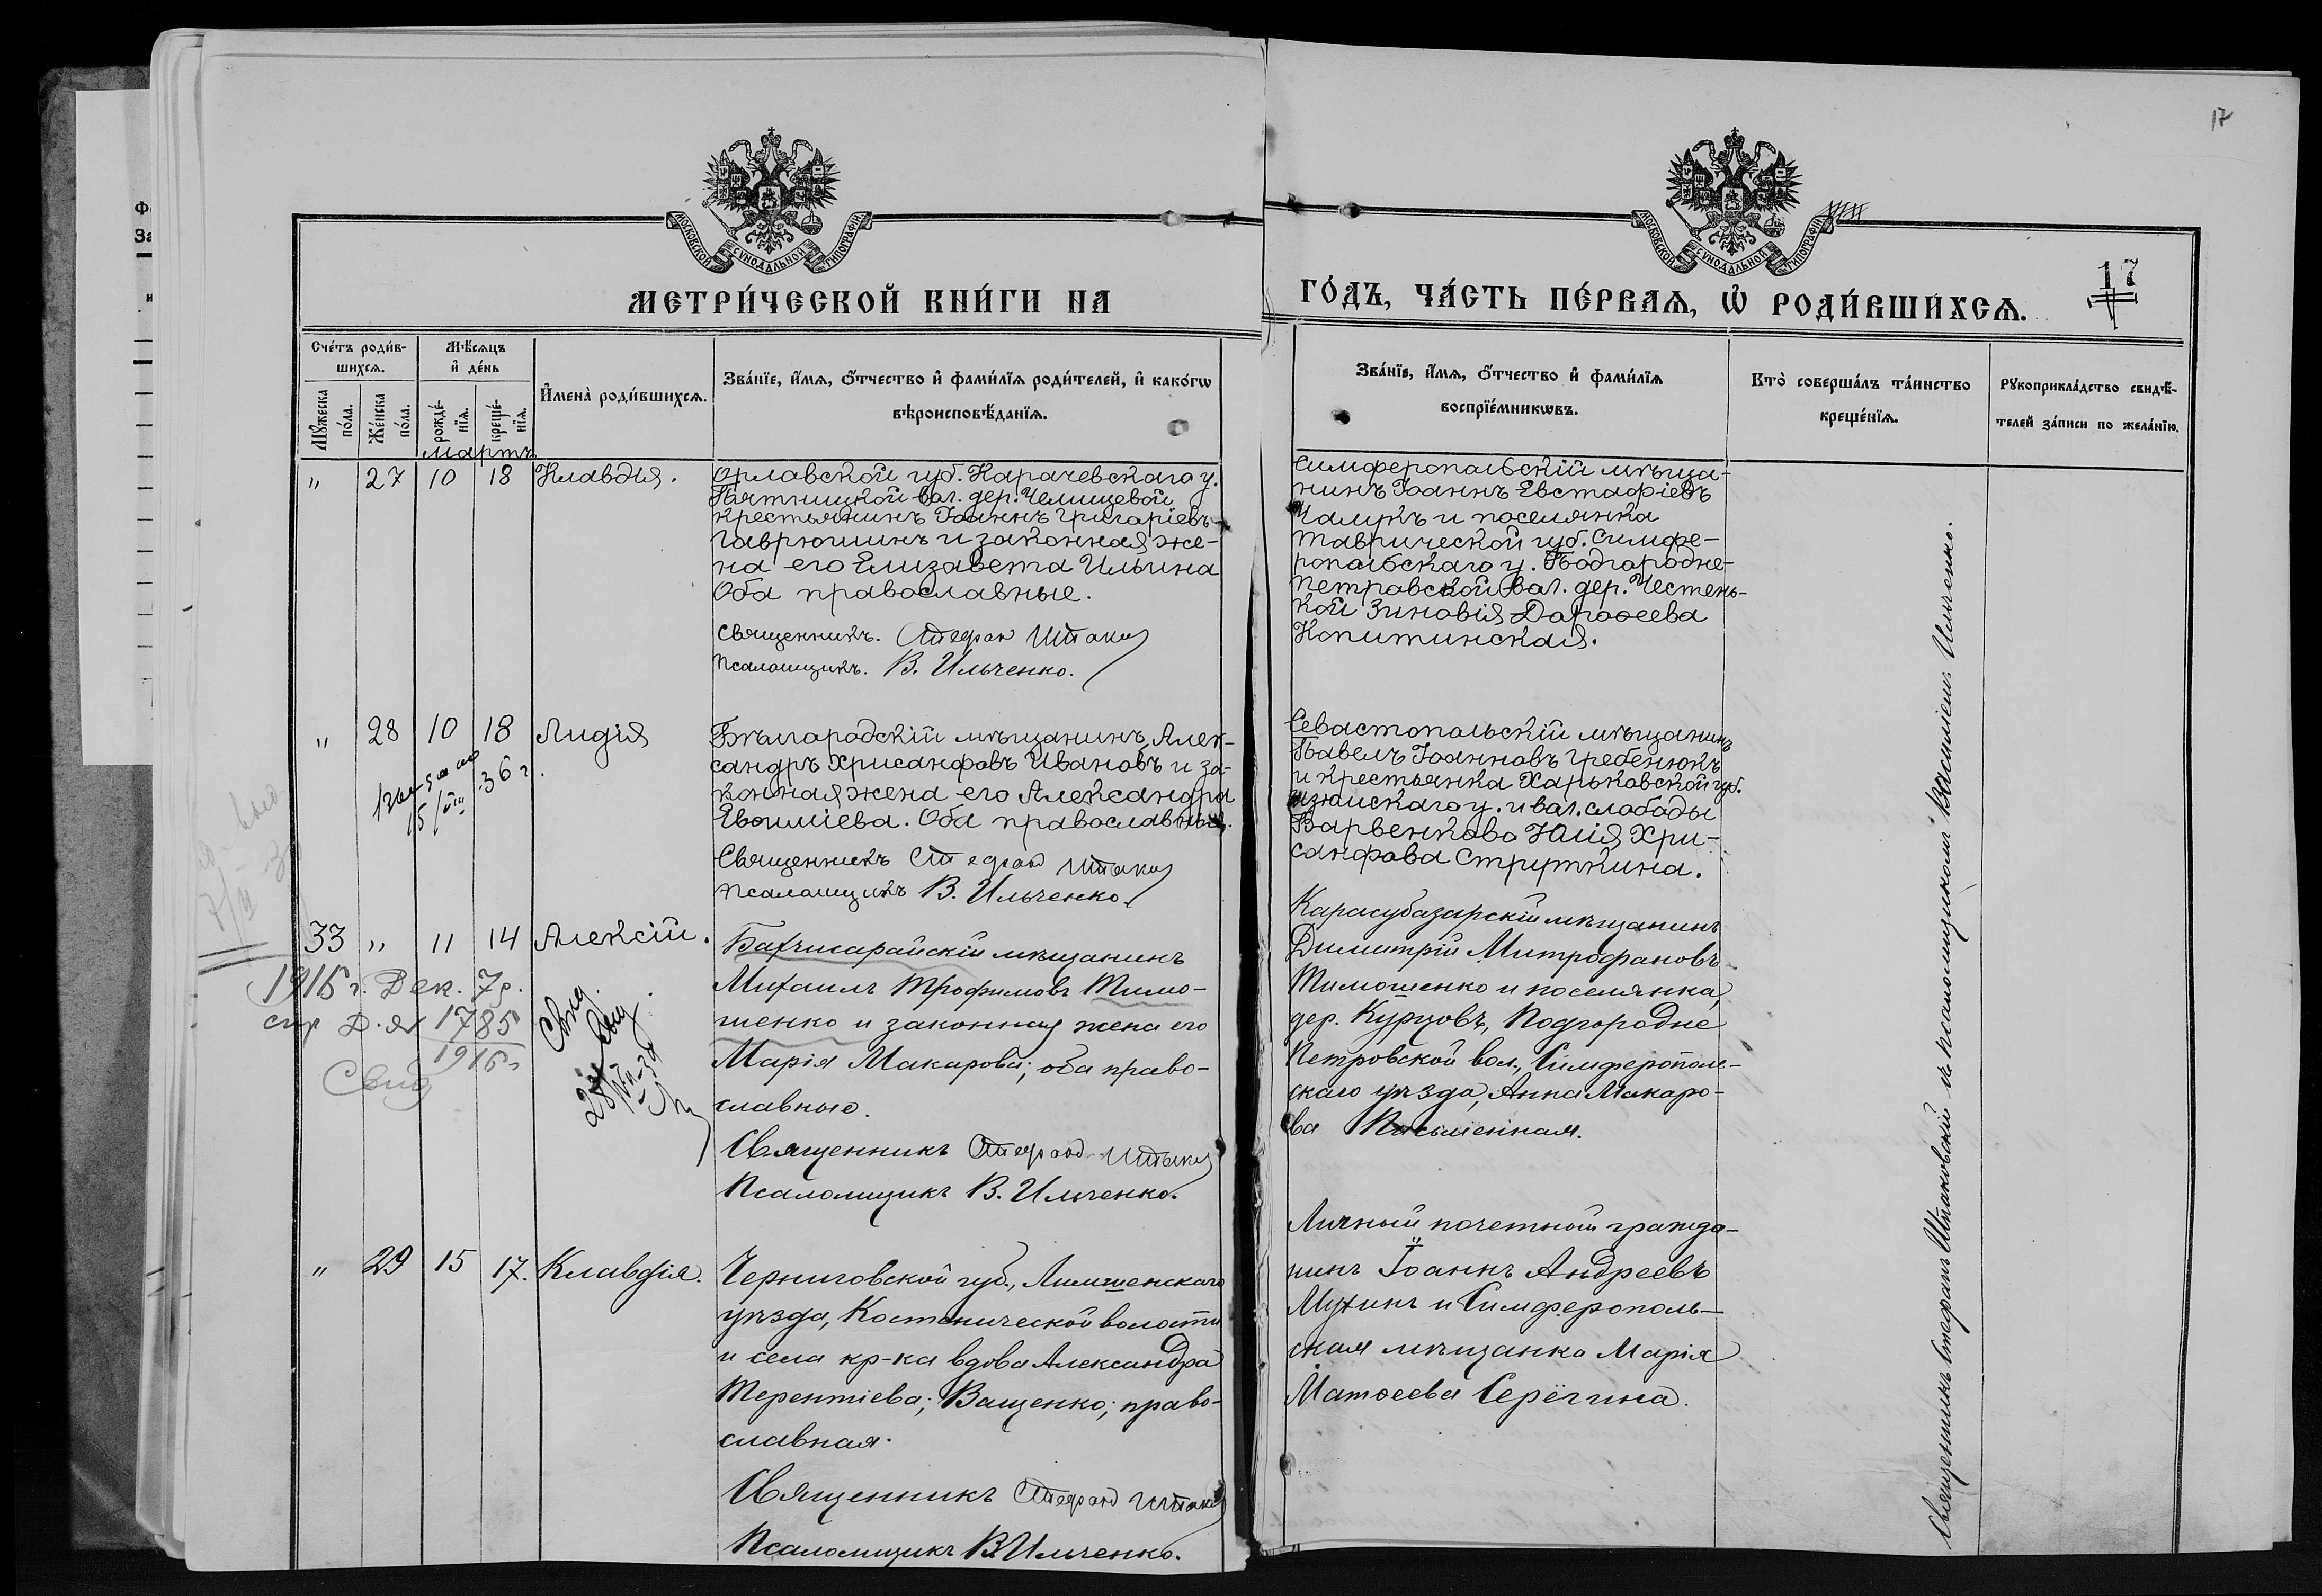 17
МОСКОВСКОЙ СѴНОДАЛЬНОЙ ТИПОГРАФІИ
МОСКОВСКОЙ СѴНОДАЛЬНОЙ ТИПОГРАФІИ
МЕТРИ́ЧЕСКОЙ КНИ́ГИ НА
ГО́ДЪ, ЧА́СТЬ ПЕ́РВАЯ, Ѡ РОДИ́ВШИХСЯ.
17
Сче́тъ роди́в-
шихся.
Мѣ́сяцъ
и де́нь
Му́жеска
по́ла.
Же́нска
по́ла.
рожде́-
нія.
креще́-
нія.
Имена̀ роди́вшихся.
Зва́ніе, и́мя, о́тчество и фами́лія роди́телей, и како́гѡ
вѣроисповѣ́данія.
Зва́ніе, и́мя, о́тчество и фами́лія
воспріе́мникѡвъ.
Кто̀ соверша́лъ та́инство
креще́нія.
Рукоприкла́дство свидѣ́-
телей за́писи по жела́нію.
Мартъ
" 27 10 18 Клавдія.
Орловской губ. Карачевскаго у.
Пятницкой вол. дер. Челищевой
крестьянинъ Іоаннъ Григоріевъ
Гаврюшинъ и законная же-
на его Елизавета Ильина
Оба православные.
Священникъ. Стефан Штаков
Псаломщикъ. В. Ильченко.
Симферопольскій мѣща-
нинъ Іоаннъ Евстафіевъ
Чалыкъ и поселянка
Таврической губ. Симфе-
ропольскаго у. Подгородне-
Петровской вол. дер. Честень-
кой Зиновія Дороѳеева
Копитинская.
" 28 10 18 Лидія
36 г.
Бѣлгородскій мѣщанинъ Алек-
сандръ Хрисанфовъ Ивановъ и за-
конная жена его Александра
Евѳиміева. Оба православные.
Священникъ Стефан Штаков
Псаломщикъ В. Ильченко.
Севастопольскій мѣщанинъ
Павелъ Іоанновъ Гребенюкъ
и крестьянка Харьковской губ.
Изюмскаго у. и вол. слободы
Барвенкова Юлія Хри-
санфова Струткина.
33 " 11 14 Алексій.
1915 г. Дек. 7 г.
1785
1916 г
Свид
Свид.
Бахчисарайскій мѣщанинъ
Михаилъ Трофимовъ Тимо-
шенко и законная жена его
Марія Макарова; оба право-
славные.
Священникъ Стефан Штаков
Псаломщикъ В. Ильченко.
Карасубазарскій мѣщанинъ
Димитрій Митрофановъ
Тимошенко и поселянка,
дер. Курцовъ, Подгородне
Петровской вол., Симферополь-
скаго уѣзда, Анна Макаро-
ва Письменная.
" 29 15 17. Клавдія.
Черниговской губ., Мглинскаго
уѣзда, Костеничской волости
и села кр-ка вдова Александра
Терентіева; Ващенко; право-
славная.
Священникъ Стефан Штаков
Псаломщикъ В. Ильченко.
Личный почетный гражда-
нинъ Іоаннъ Андреевъ
Мухинъ и Симферополь-
ская мѣщанка Марія
Матѳеева Серёгина.
Священникъ Стефанъ Штаковскій съ псаломщикомъ Василіемъ Ильченко.